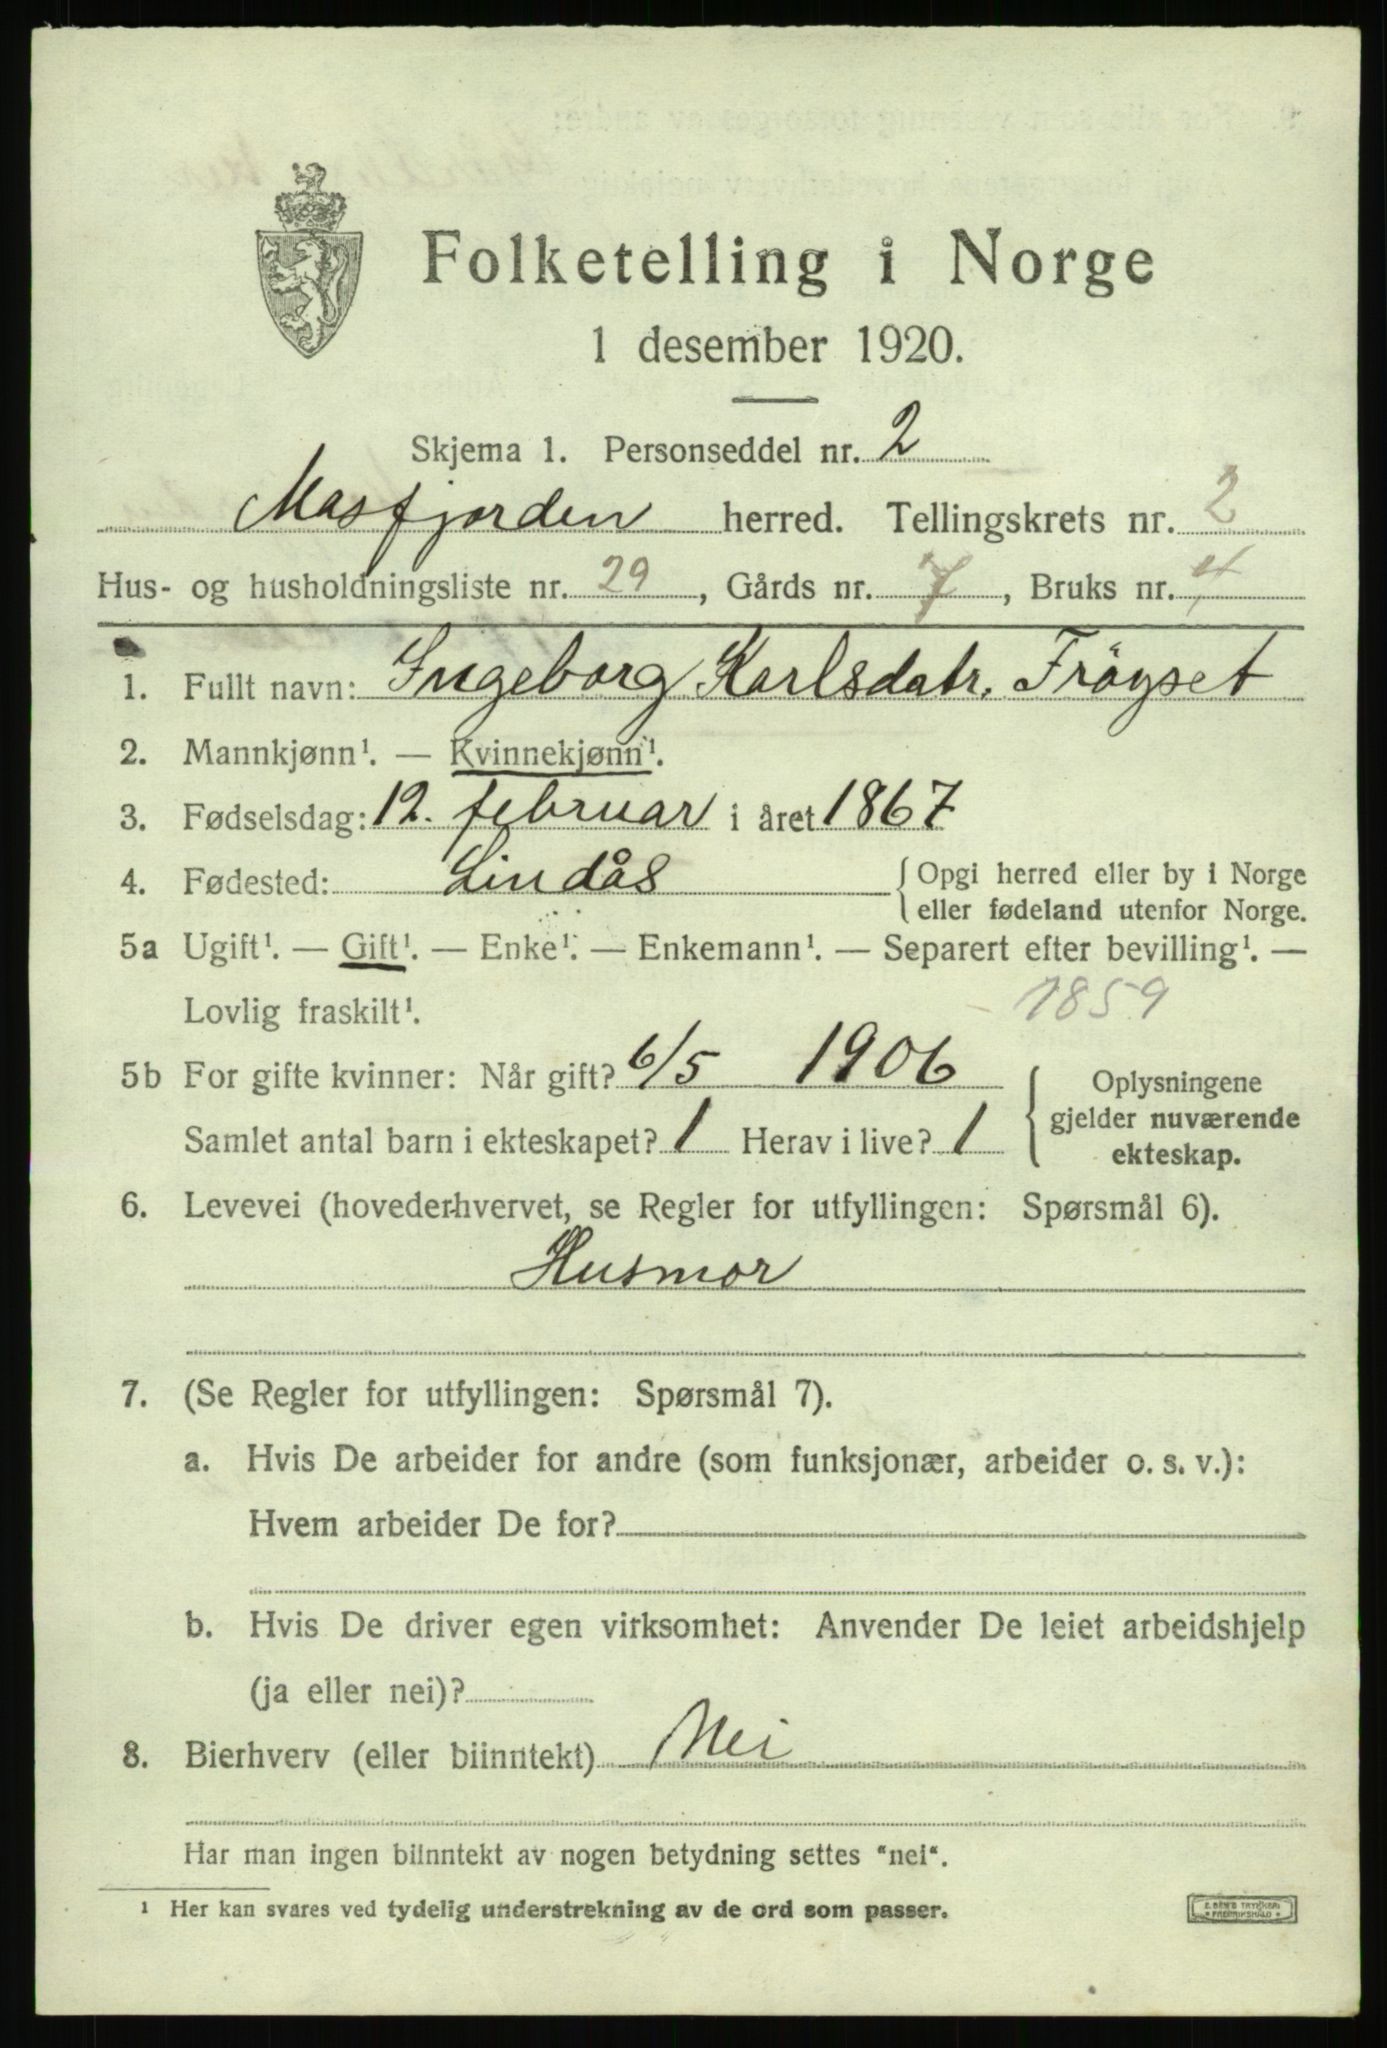 Folketelling i Norge
1 desember 1920.
Skjema 1. Personseddel nr. 2
Masfjorden herred. Tellingskrets nr. 2
Hus- og husholdningsliste nr. 29, Gårds nr. 7, Bruks nr. 4
1. Fullt navn: Ingeborg Karlsdatr. Fröyset
2. Mannkjønn¹. — Kvinnekjønn¹.
3. Fødselsdag: 12. februar i året 1867
4. Fødested: Lindås { Opgi herred eller by i Norge
eller fødeland utenfor Norge.
5a Ugift¹. — Gift¹. — Enke¹. — Enkemann¹. — Separert efter bevilling¹. —
Lovlig fraskilt¹. 1859
5b For gifte kvinner: Når gift? 6/5 1906
Samlet antal barn i ekteskapet? 1 Herav i live? 1
{ Oplysningene
gjelder nuværende
ekteskap.
6. Levevei (hovederhvervet, se Regler for utfyllingen: Spørsmål 6).
Husmor
7. (Se Regler for utfyllingen: Spørsmål 7).
a. Hvis De arbeider for andre (som funksjonær, arbeider o. s. v.):
Hvem arbeider De for?
b. Hvis De driver egen virksomhet: Anvender De leiet arbeidshjelp
(ja eller nei)?
8. Bierhverv (eller biinntekt) Nei
Har man ingen biinntekt av nogen betydning settes "nei".
¹ Her kan svares ved tydelig understrekning av de ord som passer.